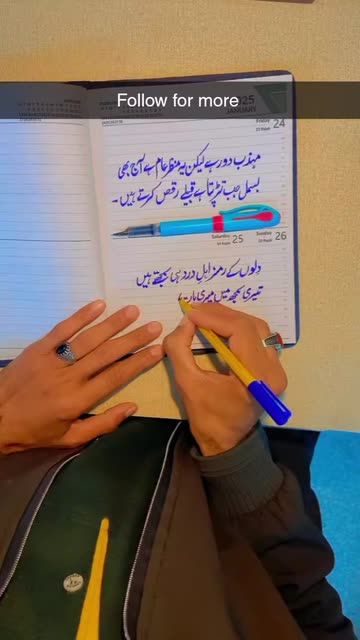 Follow for more
2025
JANUARY
Friday 24
مہذب دور ہے لیکن یہ منظر عام ہے آج بھی
بسمل جب تڑپتا ہے قبیلے رقص کرتے ہیں۔
Saturday 25
26
دلوں کے رمز اہلِ درد ہی سمجھتے ہیں
تیری سمجھ میں میری بات